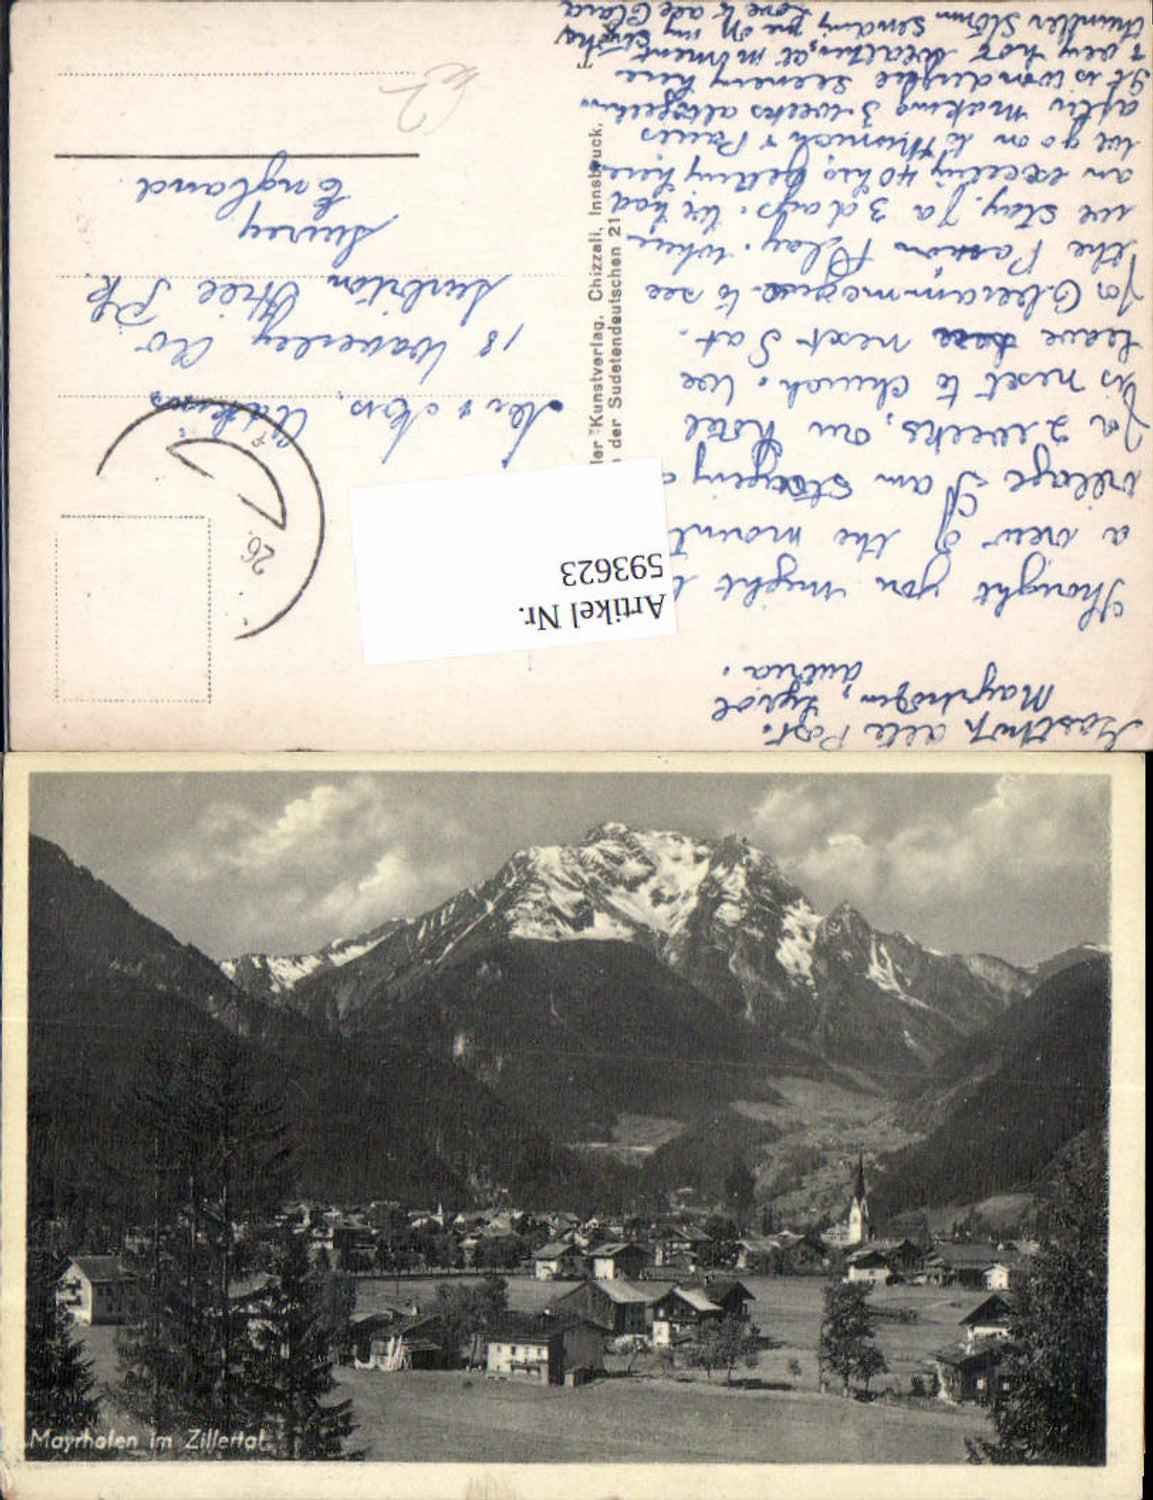 Gasthof alte Post.
Mayrhofen, Tyrol
Austria.
Thought you might
a view of the mount
village I am staying
for 2 weeks, our Hotel
is next to church. We
leave next Sat.
for Oberammergau to see
the Passion Play. where
we stay for 3 days. We had
an exciting 40 hrs getting here
we go on to Munich &
after making 3 weeks altogether
It is wonderful scenery here
& very hot weather, at moment
thunder storm sending
love to all Clara
ler Kunstverlag. Chizzali, Innsbruck,
der Sudetendeutschen 21
Mr & Mrs.
18 Waverley Av
Surbiton
Surrey
England.
26.
Artikel Nr.
593623
Mayrhofen im Zillertal